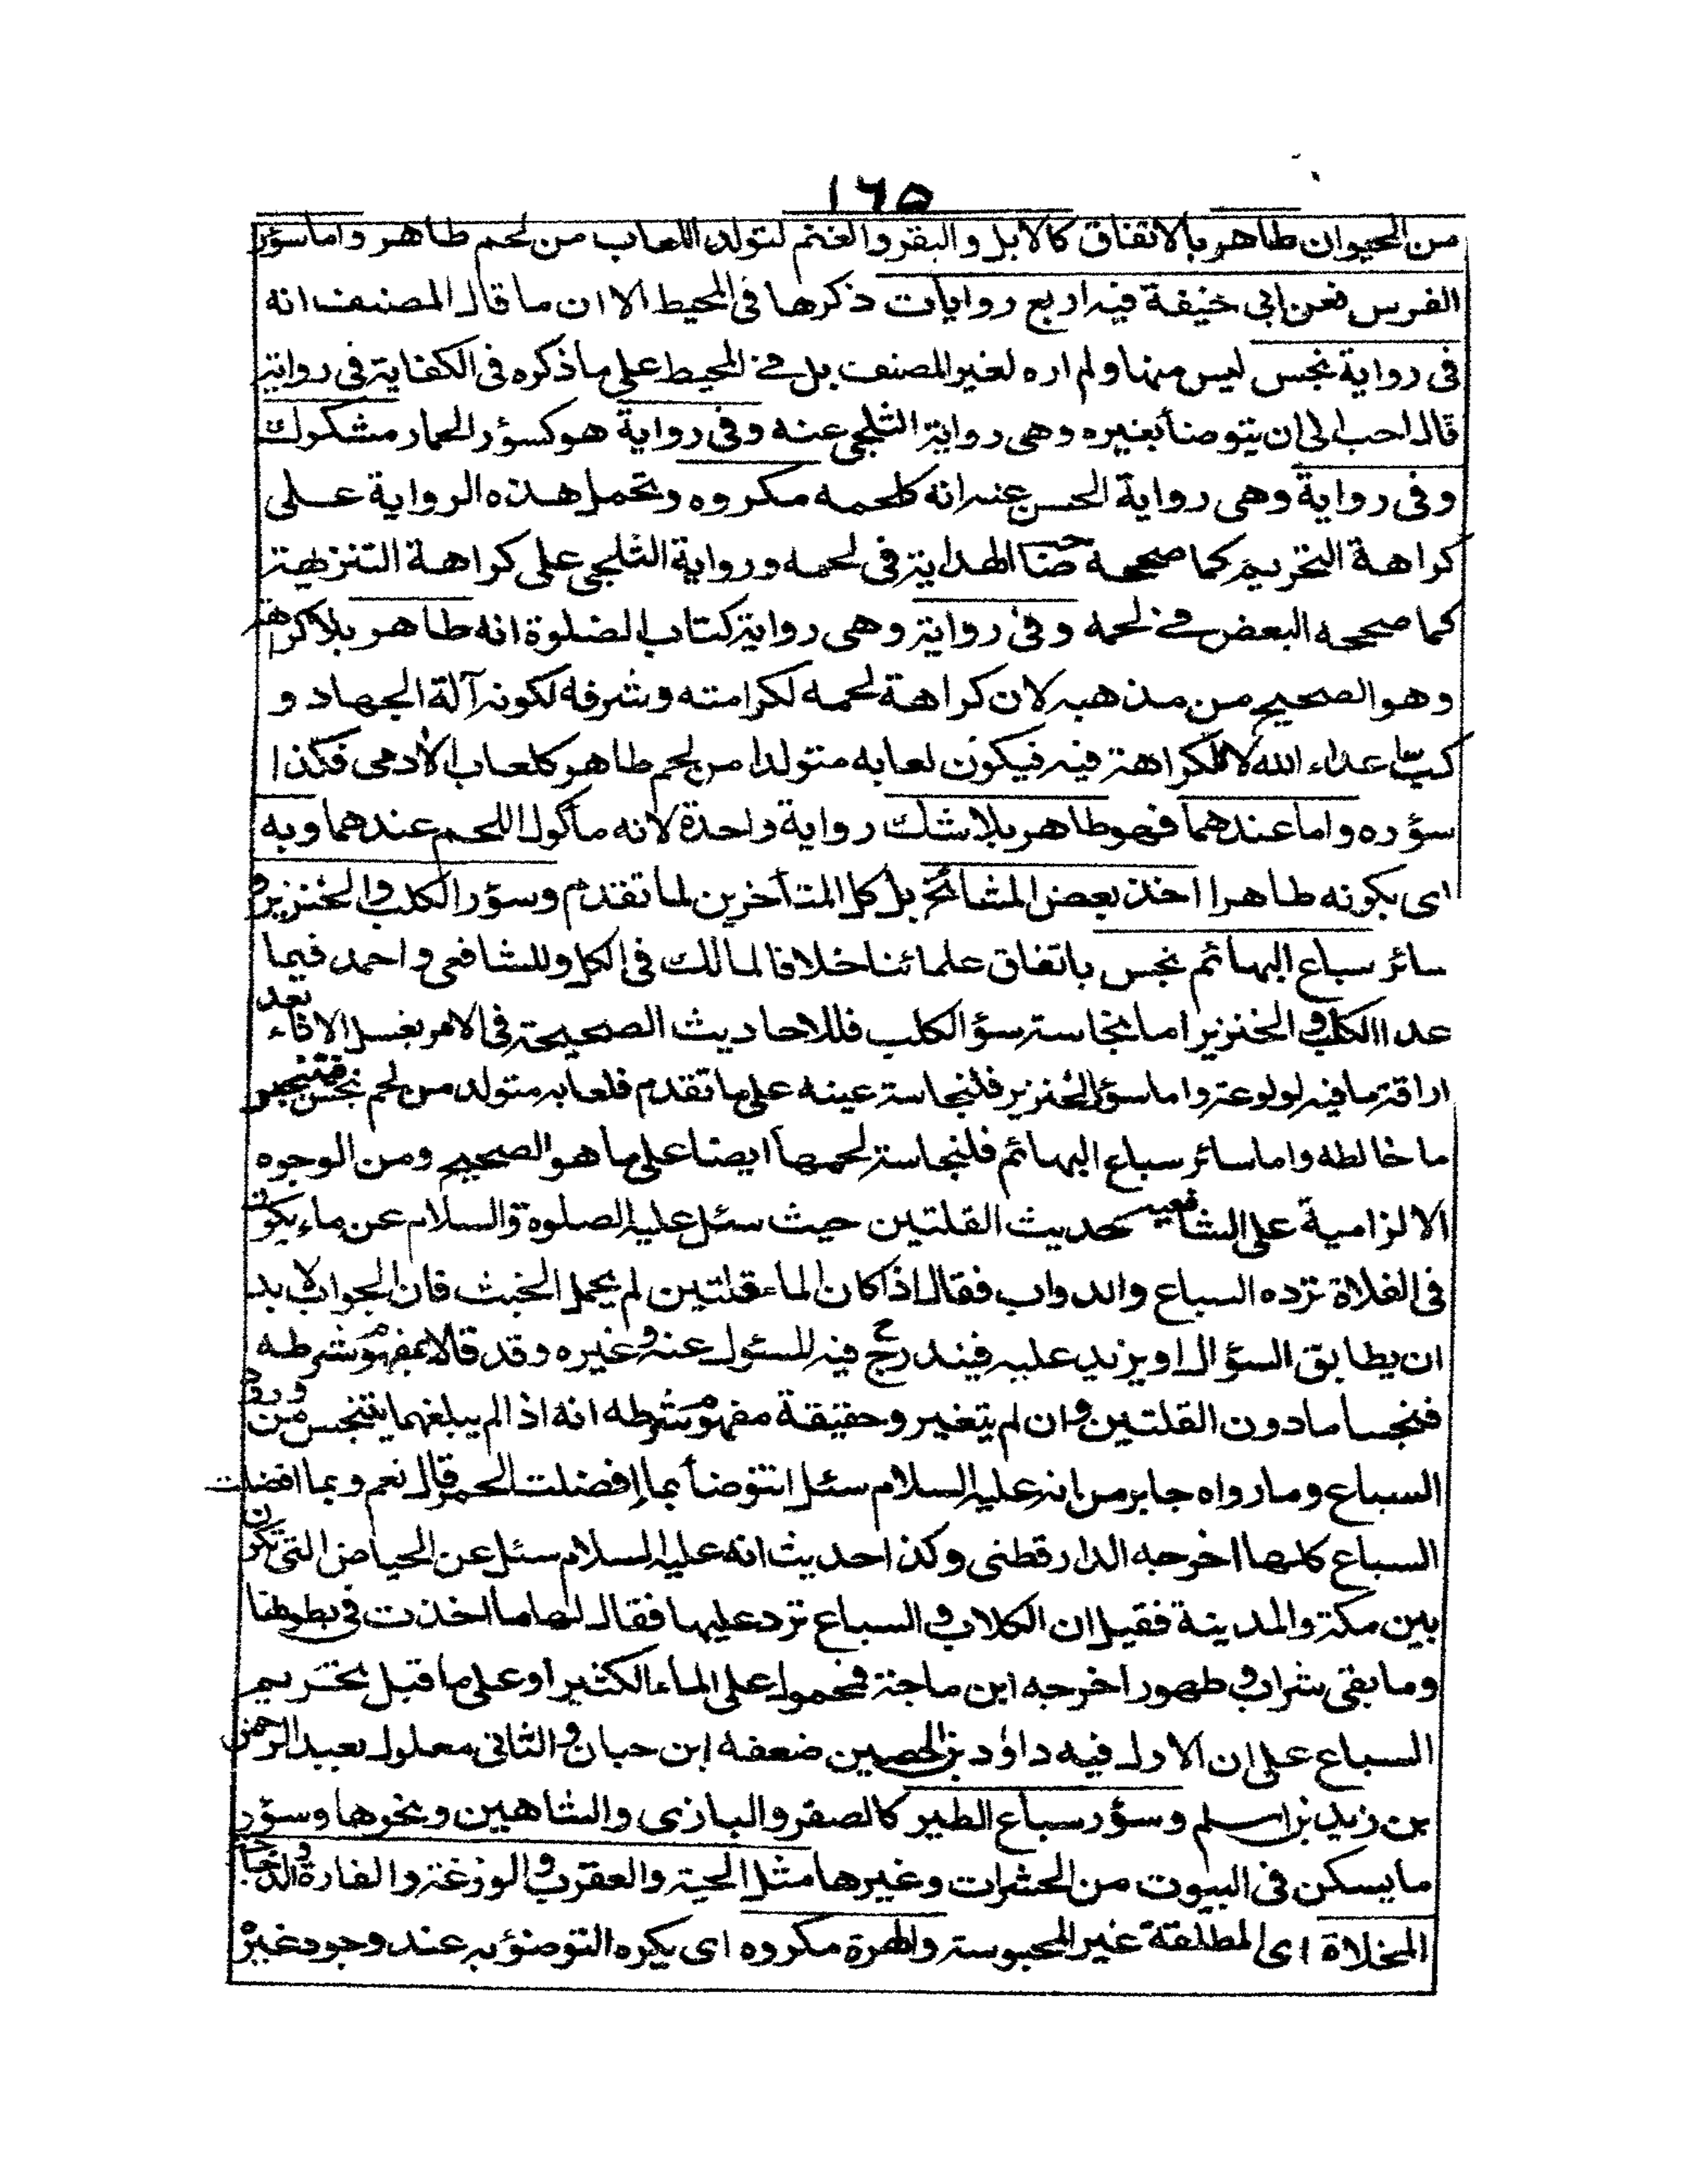 ١٦٥
من الحيوان طاهر بالاتفاق كالابل والبقر والغنم لتولد اللعاب من لحم طاهر واما سؤر
الفرس فعن ابي حنيفة فيه اربع روايات ذكرها فى المحيط الا ان ما قال المصنف انه
فى رواية نجس ليس منها ولم اره لغير المصنف بل فى المحيط على ما ذكره فى الكفاية فى رواية
قال احب الى ان يتوضأ بغيره وهى رواية الثلجى عنه وفى رواية هو كسؤر الحمار مشكوك
وفى رواية وهى رواية الحسن عنه انه كلحمه مكروه وتحمل هذه الرواية على
كراهة التحريم كما صححه صاحب الهداية فى لحمه ورواية الثلجى على كراهة التنزيهة
كما صححه البعض فى لحمه وفى رواية وهى رواية كتاب الصلوة انه طاهر بلا كراهة
وهو الصحيح من مذهبه لان كراهة لحمه لكرامته وشرفه لكونه آلة الجهاد و
كبت اعداء الله لا لكراهة فيه فيكون لعابه متولدا من لحم طاهر كلعاب الأدمى فكذا
سؤره واما عندهما فهو طاهر بلا شك رواية واحدة لانه مأكول اللحم عندهما وبه
اى بكونه طاهرا اخذ بعض المشائخ بل كل المتأخرين لما تقدم وسؤر الكلب والخنزير و
سائر سباع البهائم نجس باتفاق علمائنا خلافا لمالك فى الكل وللشافعى واحمد فيما
عدا الكلب والخنزير اما نجاسة سؤ الكلب فللاحاديث الصحيحة فى الامر بغسل الاناء بعد
اراقة ما فيه لولوغه واما سؤر الخنزير فلنجاسة عينه على ما تقدم فلعابه متولد من لحم نجس فتنجس
ما خالطه واما سائر سباع البهائم فلنجاسة لحمها ايضا على ما هو الصحيح ومن الوجوه
الالزامية على الشافعيه حديث القلتين حيث سئل عليه الصلوة والسلام عن ماء يكون
فى الفلاة ترده السباع والدواب فقال اذا كان الماء قلتين لم يحمل الخبث فان الجواب لا بد
ان يطابق السؤال او يزيد عليه فيندرج فيه المسئول عنه وغيره وقد قالا بمفهوم شرطه
فنجسا ما دون القلتين وان لم يتغير وحقيقة مفهوم شرطه انه اذا لم يبلغهما يتنجس من ورود
السباع وما رواه جابر من انه عليه السلام سئل انتوضأ بما افضلت الحمر قال نعم وبما افضلت
السباع كلها اخرجه الدارقطنى وكذا حديث انه عليه السلام سئل عن الحياض التى تكون
بين مكة والمدينة فقيل ان الكلاب والسباع ترد عليها فقال لها ما اخذت فى بطونها
وما بقى شراب وطهور اخرجه ابن ماجة فمحمول على الماء الكثير او على ما قبل تحريم
السباع على ان الاول فيه داؤد بن الحصين ضعفه ابن حبان والثانى معلول بعبد الرحمن
بن زيد بن اسلم وسؤر سباع الطير كالصقر والبازى والشاهين ونحوها وسؤر
ما يسكن فى البيوت من الحشرات وغيرها مثل الحية والعقرب والوزغة والفارة والدجاجة
المخلاة اى المطلقة غير المحبوسة والهرة مكروه اى يكره التوضؤ به عند وجود غيره